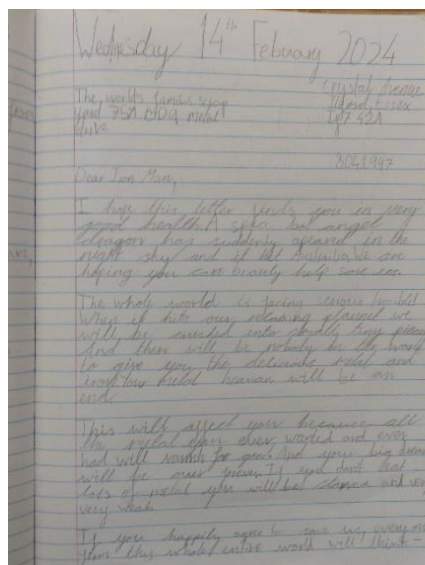 Wednesday 14th Febuary 2024
Crystal Avenue
The world's famous scrap
yard 75A metal
Ilford, Essex
drive
8041997
Dear Iron Man,
I hope this letter finds you in very
good health. A space bat angel
dragon has suddenly apeared in the
night sky and it hit Australia. We are
hoping you can bravely help save
The whole world is facing serious trouble!
When it hits our relaxing planet we
will be crushed into tiny pieces
And there will be nobody in the world
to give you the delicious metal and
your metal heavan will be an
end.
This will affect you because all
the metal you ever wanted and ever
had will vanish for good. And your big dream
will be over forever. If you dont eat
lots of metal you will be and very
very weak.
If you happily agree to save us, every one
from this whole entire world will think